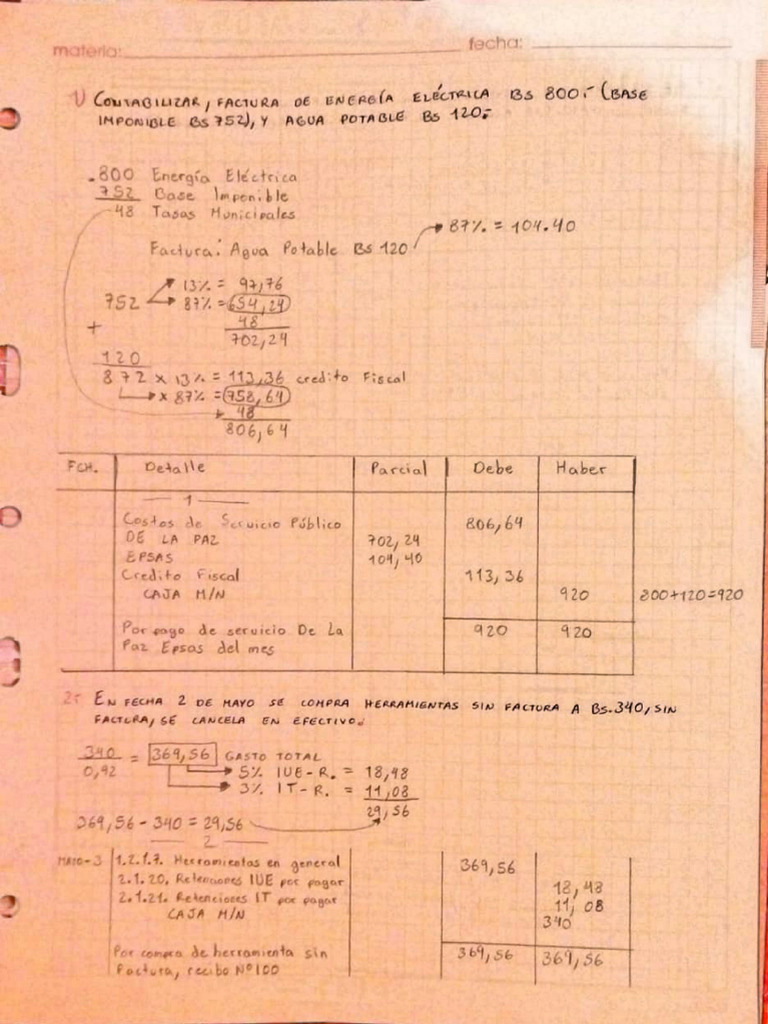 materia:
fecha:
1) CONTABILIZAR, FACTURA DE ENERGÍA ELÉCTRICA BS 800.- (BASE
IMPONIBLE BS 752), Y AGUA POTABLE BS 120.-
800 Energía Eléctrica
752 Base Imponible
48 Tasas Municipales
Factura: Agua Potable BS 120 → 87% = 104.40
13% = 97,76
752 87% = 654,24
48
702,24
+
120
872 x 13% = 113,36 credito Fiscal
x 87% = 758,64
48
806,64
FCH. Detalle Parcial Debe Haber
1
Costos de Servicio Público 806,64
DE LA PAZ 702,24
EPSAS 104,40
Credito Fiscal 113,36
CAJA M/N 920 800+120=920
Por pago de servicio De La 920 920
Paz Epsas del mes
2- EN FECHA 2 DE MAYO SE COMPRA HERRAMIENTAS SIN FACTURA A BS.340, SIN
FACTURA, SE CANCELA EN EFECTIVO.
340 / 0,92 = 369,56 GASTO TOTAL
5% IUE-R. = 18,48
3% IT-R. = 11,08
29,56
369,56 - 340 = 29,56
2
MAYO-3 1.2.1.7. Herramientas en general 369,56
2.1.20. Retenciones IUE por pagar 18,48
2.1.21. Retenciones IT por pagar 11,08
CAJA M/N 340
Por compra de herramienta sin 369,56 369,56
Factura, recibo Nº100